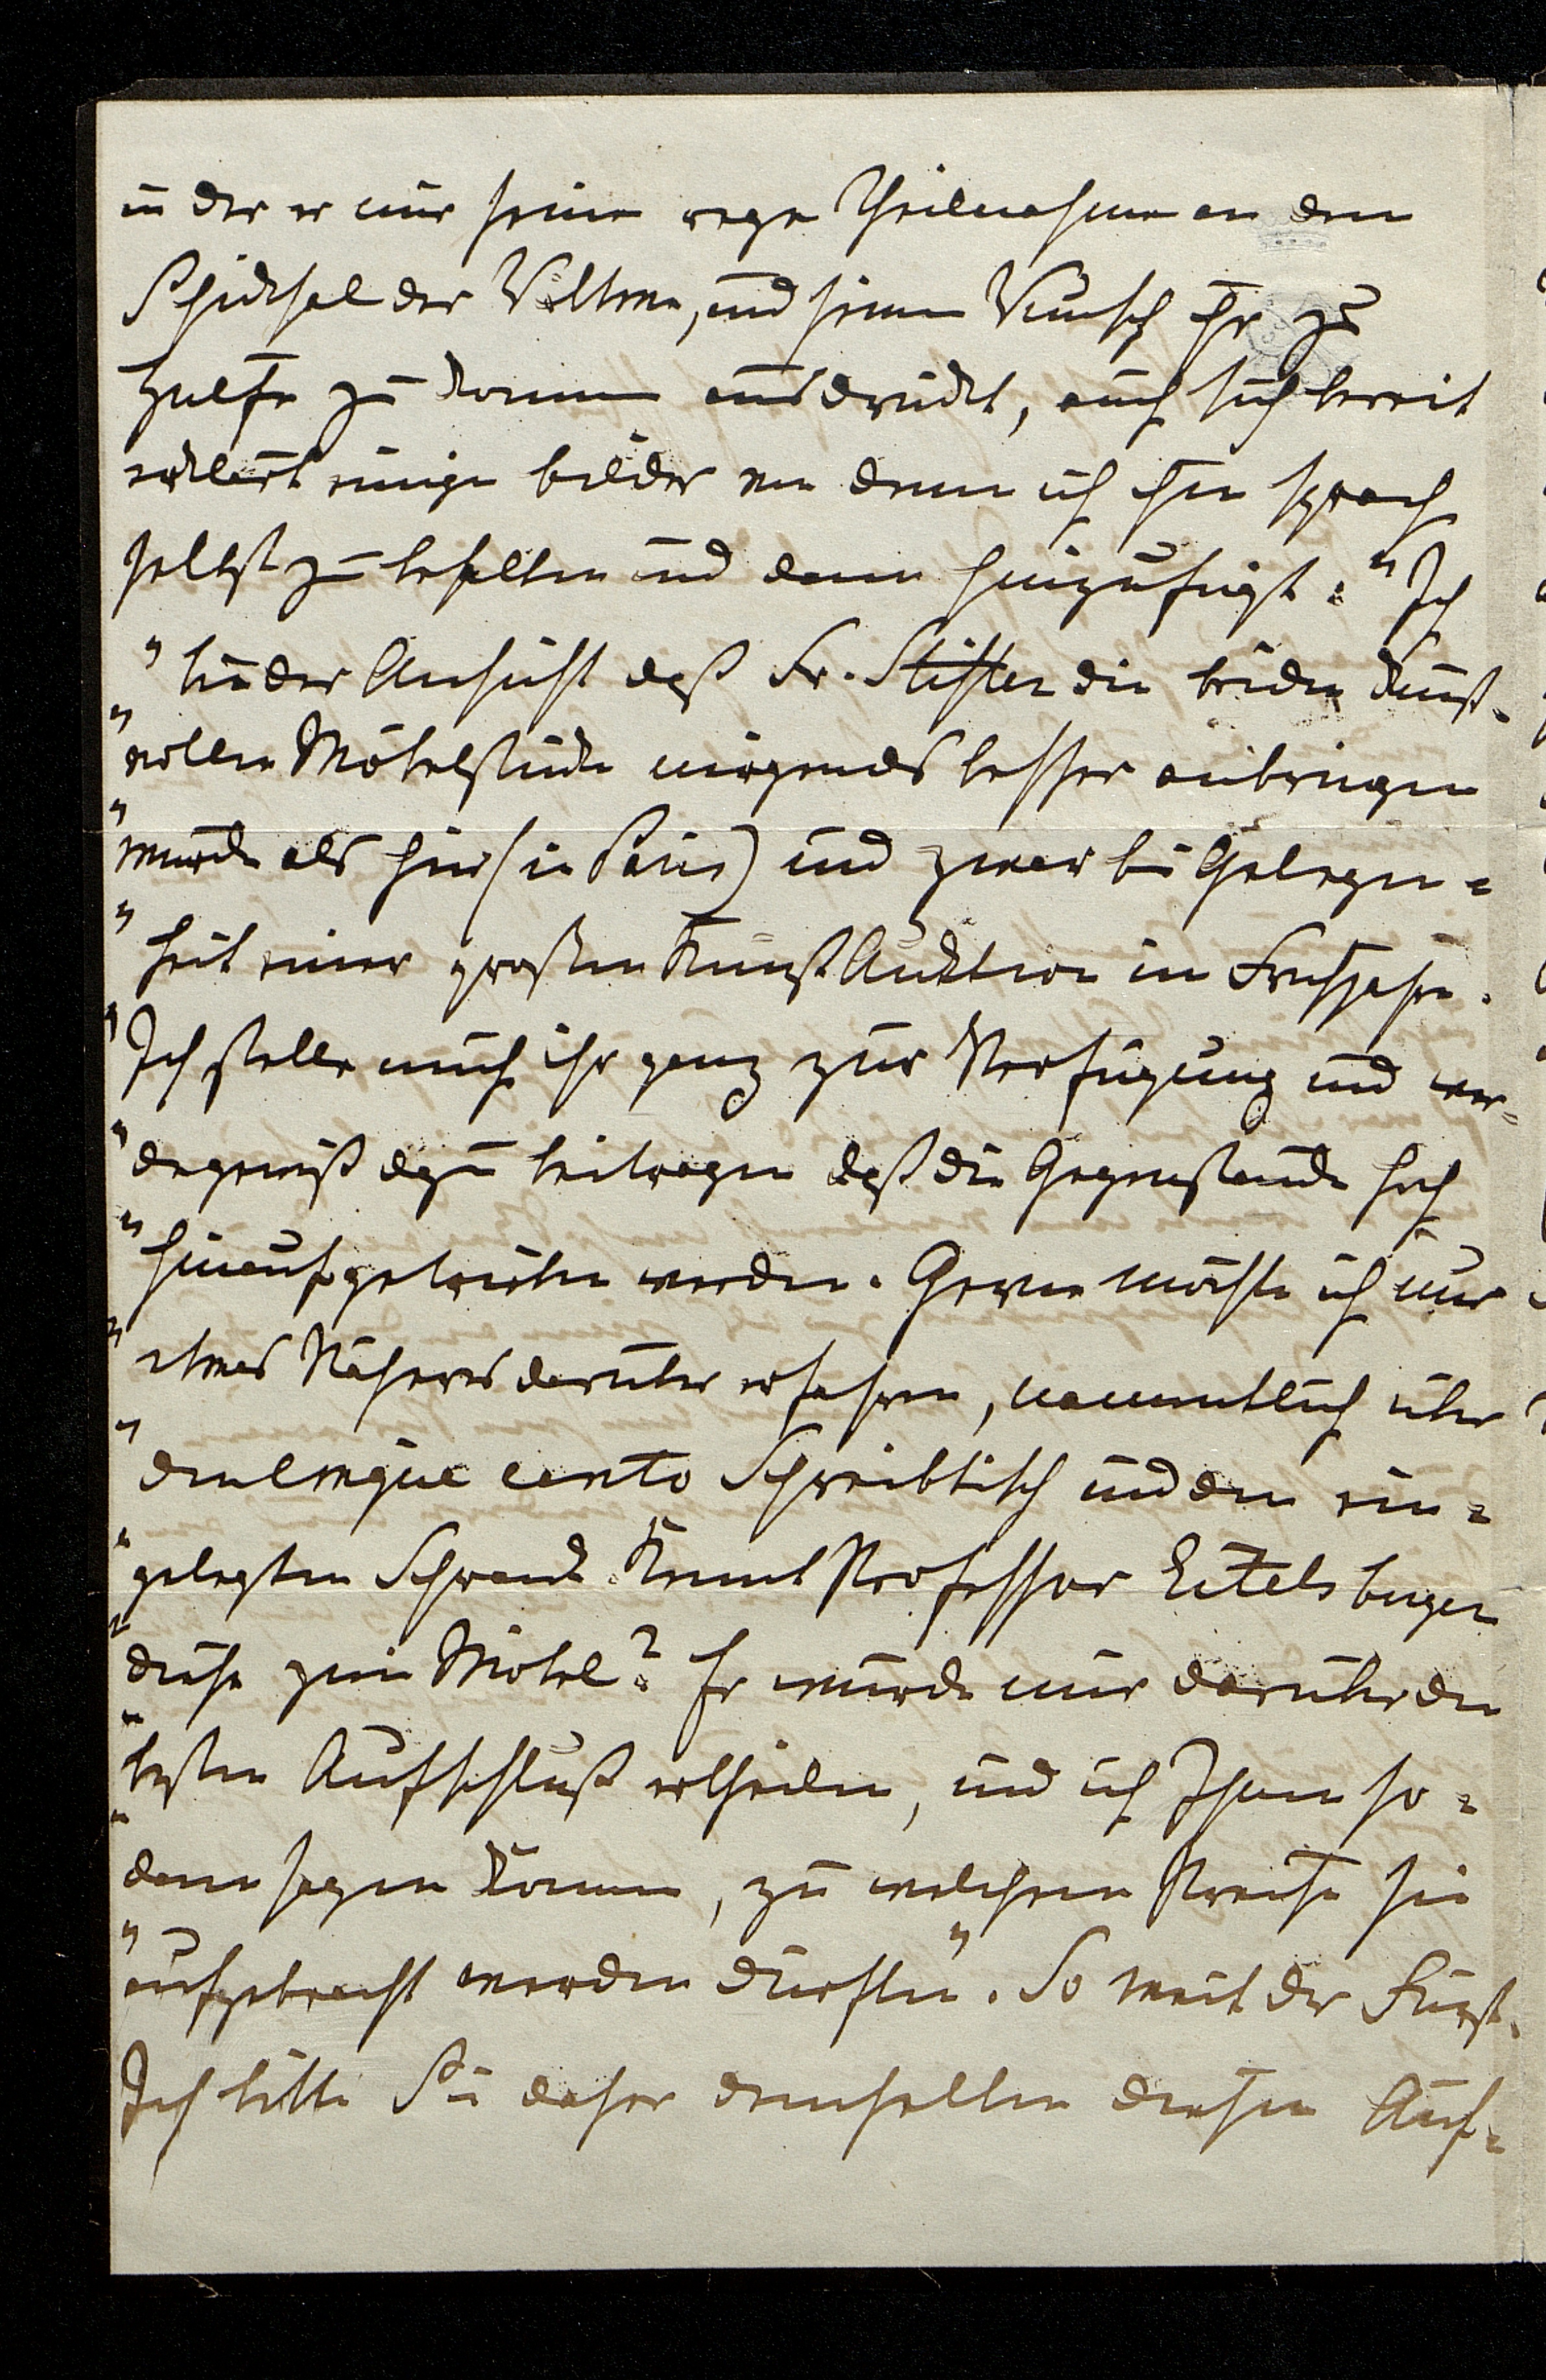 in der er mir seine rege Theilnahme an dem
Schicksal der Wittwe, und seinen Wunsch ihr zu
Hülfe zu kommen ausdrückt, auch sich bereit
erklärt einige Bilder von denen ich ihm sprach
selbst zu behalten und dann hinzufügt: "Ich
" bin der Ansicht daß Fr. Stifter die beiden kunst-
" vollen Möbelstücke nirgends besser anbringen
" würde als hier (in Paris) und zwar bei Gelegen=
" heit einer großen Kunst Auktion im Frühjahre.
" Ich stelle mich ihr ganz zur Verfügung und wer=
" de gewiß dazu beitragen daß die Gegenstände hoch
" hinauf getrieben werden. Gerne möchte ich nur
" etwas Näheres darüber erfahren, namentlich über
" den cinque cento Schreibtisch und den ein=
" gelegten Schrank. Kennt Professor Eitelsberger
" diese zwei Möbel? Er würde mir darüber den
" besten Aufschluß ertheilen, und ich Ihnen so=
" dann sagen können, zu welchem Preise sie
" aufgebracht werden dürften". So weit der Fürst.
Ich bitte Sie daher demselben diesen Auf=